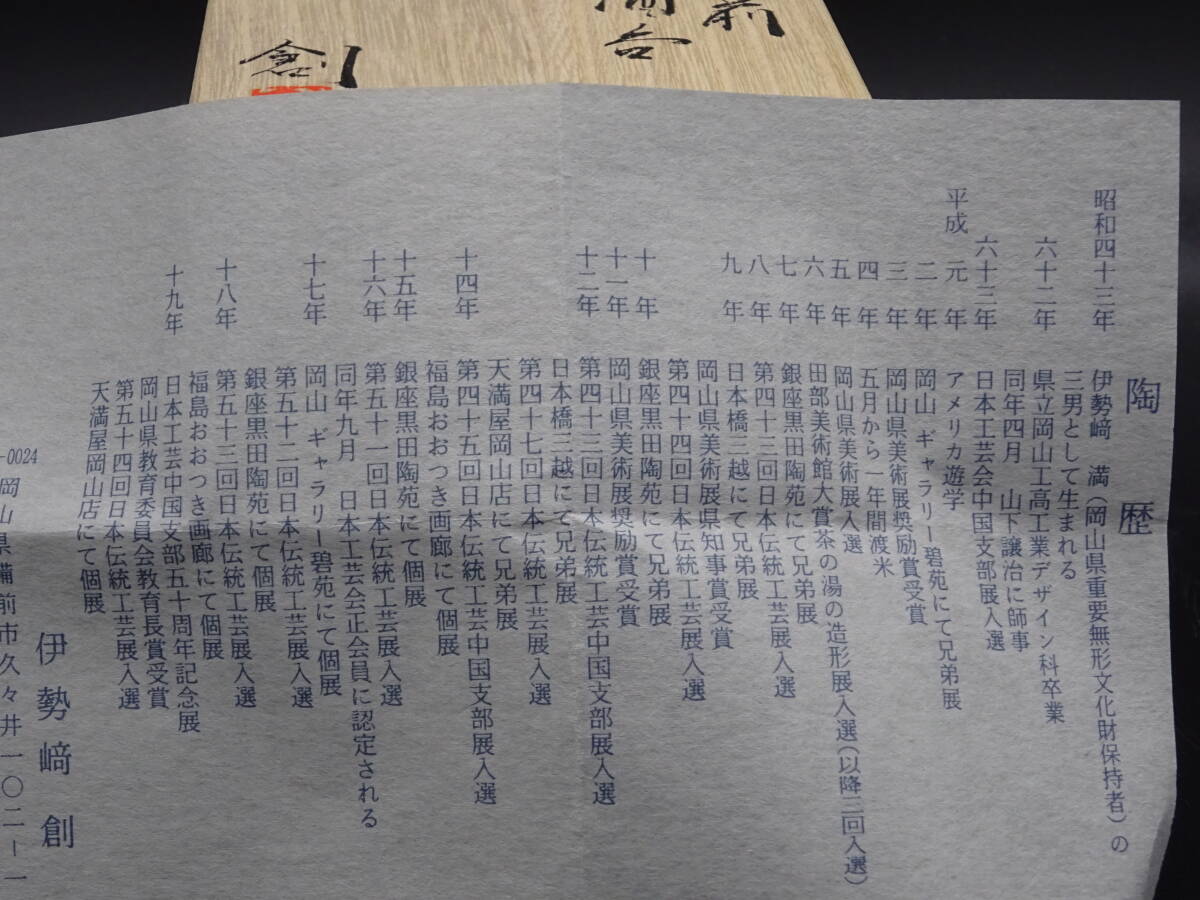 酒呑
創
陶歴
昭和四十三年 伊勢﨑 満(岡山県重要無形文化財保持者)の
三男として生まれる
六十二年 県立岡山工高工業デザイン科卒業
同年四月 山下譲治に師事
六十三年 日本工芸会中国支部展入選
平成 元年 アメリカ遊学
二年 岡山 ギャラリー碧苑にて兄弟展
三年 岡山県美術展奨励賞受賞
四年 五月から一年間渡米
五年 岡山県美術展入選
六年 田部美術館大賞茶の湯の造形展入選(以降三回入選)
七年 銀座黒田陶苑にて兄弟展
八年 第四十三回日本伝統工芸展入選
九年 日本橋三越にて兄弟展
岡山県美術展県知事賞受賞
第四十四回日本伝統工芸展入選
十年 銀座黒田陶苑にて兄弟展
十一年 岡山県美術展奨励賞受賞
十二年 第四十三回日本伝統工芸中国支部展入選
日本橋三越にて兄弟展
第四十七回日本伝統工芸展入選
天満屋岡山店にて兄弟展
十四年 第四十五回日本伝統工芸中国支部展入選
福島おおつき画廊にて個展
十五年 銀座黒田陶苑にて個展
十六年 第五十一回日本伝統工芸展入選
同年九月 日本工芸会正会員に認定される
十七年 岡山 ギャラリー碧苑にて個展
第五十二回日本伝統工芸展入選
銀座黒田陶苑にて個展
十八年 第五十三回日本伝統工芸展入選
福島おおつき画廊にて個展
十九年 日本工芸中国支部五十周年記念展
岡山県教育委員会教育長賞受賞
第五十四回日本伝統工芸展入選
天満屋岡山店にて個展
伊勢﨑 創
-0024
岡山県備前市久々井一〇二一一